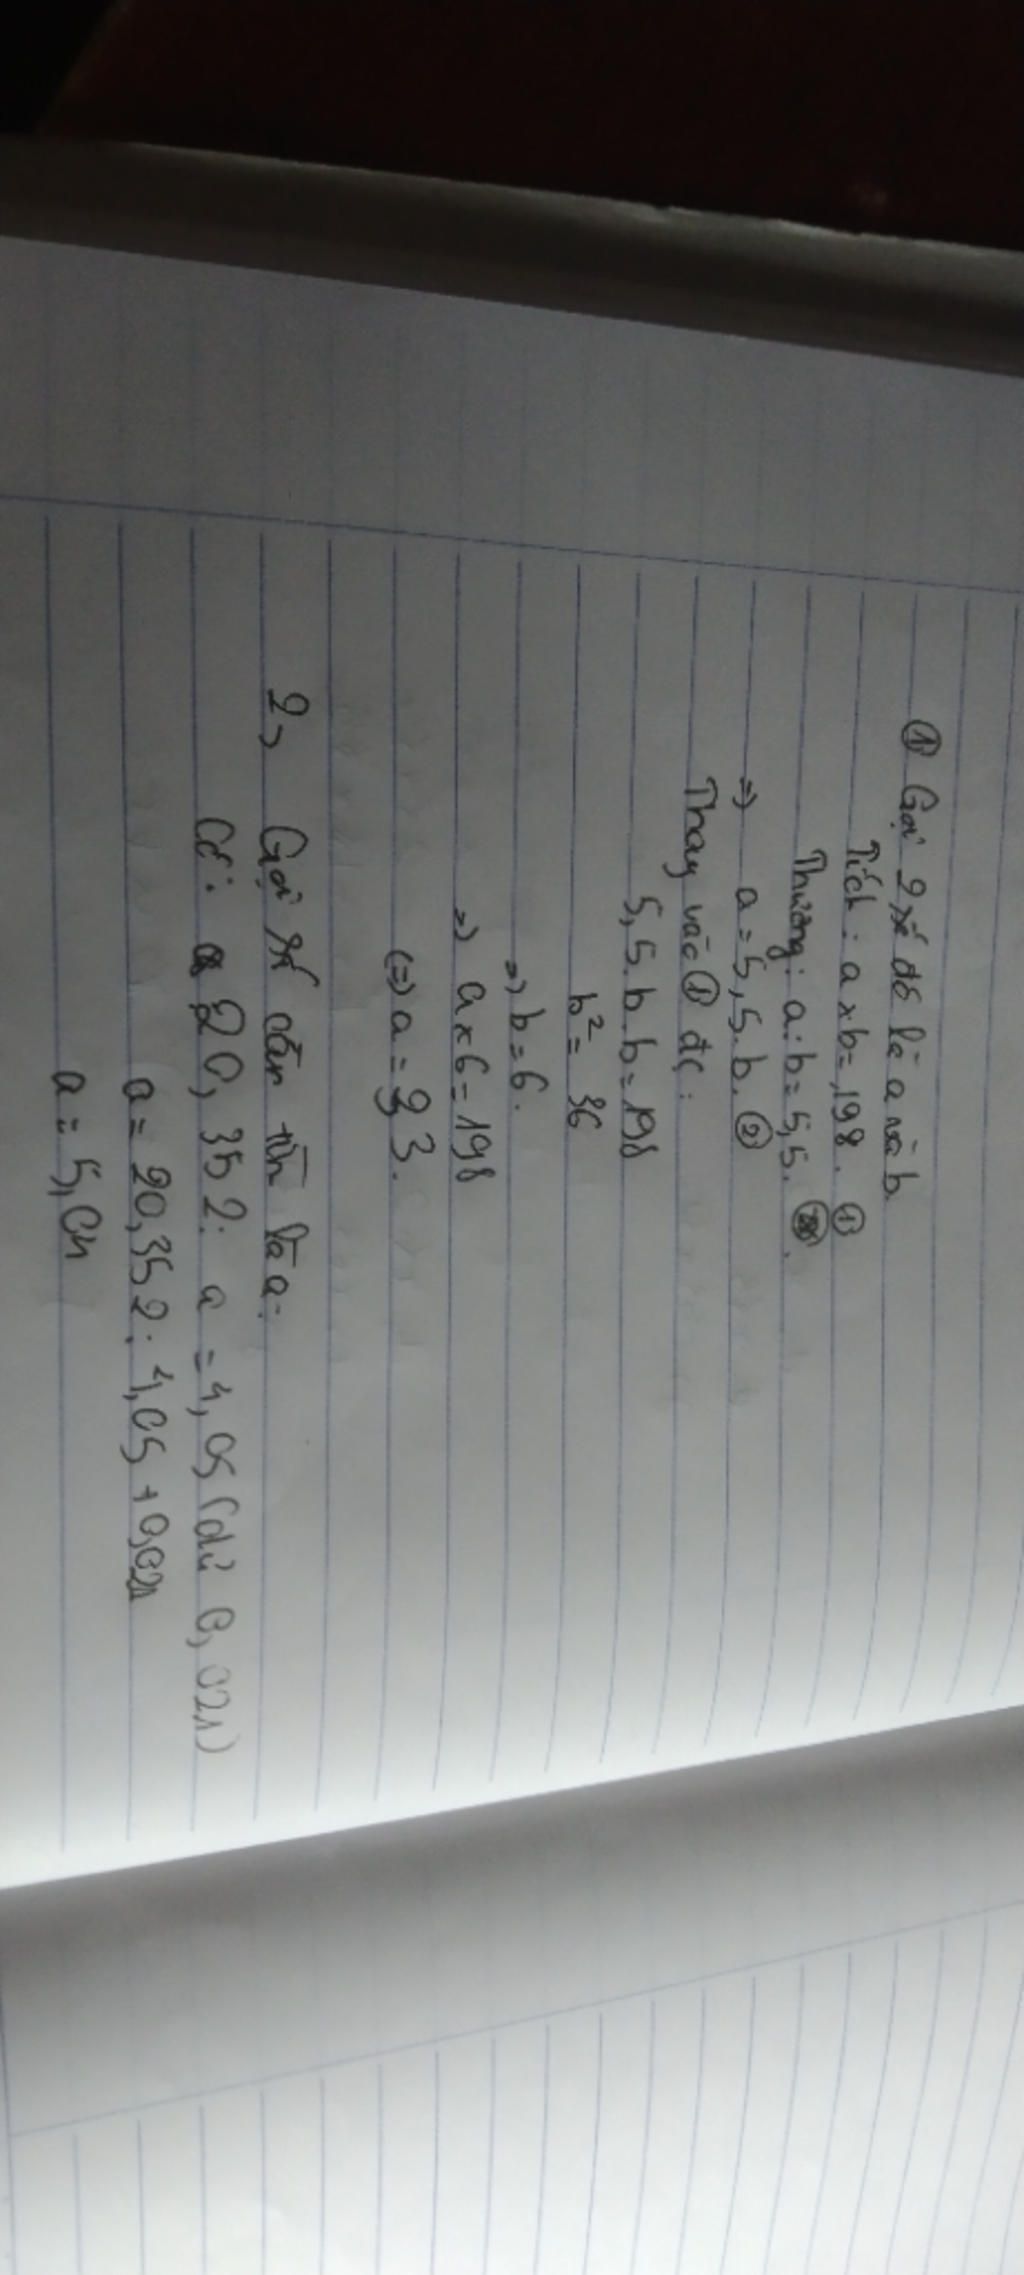 ① Gọi 2 số đó là a và b.
Tích : a x b = 198. ①
Thương : a : b = 5,5.
=> a = 5,5.b. ②
Thay vào ① đc :
5,5.b.b = 198
b² = 36
=> b = 6.
=> a x 6 = 198
(=) a = 33.
2> Gọi số cần tìm là a:
Có: 20,352 : a = 4,05 (dư 0,021)
a = 20,352 : 4,05 + 0,021
a = 5,04